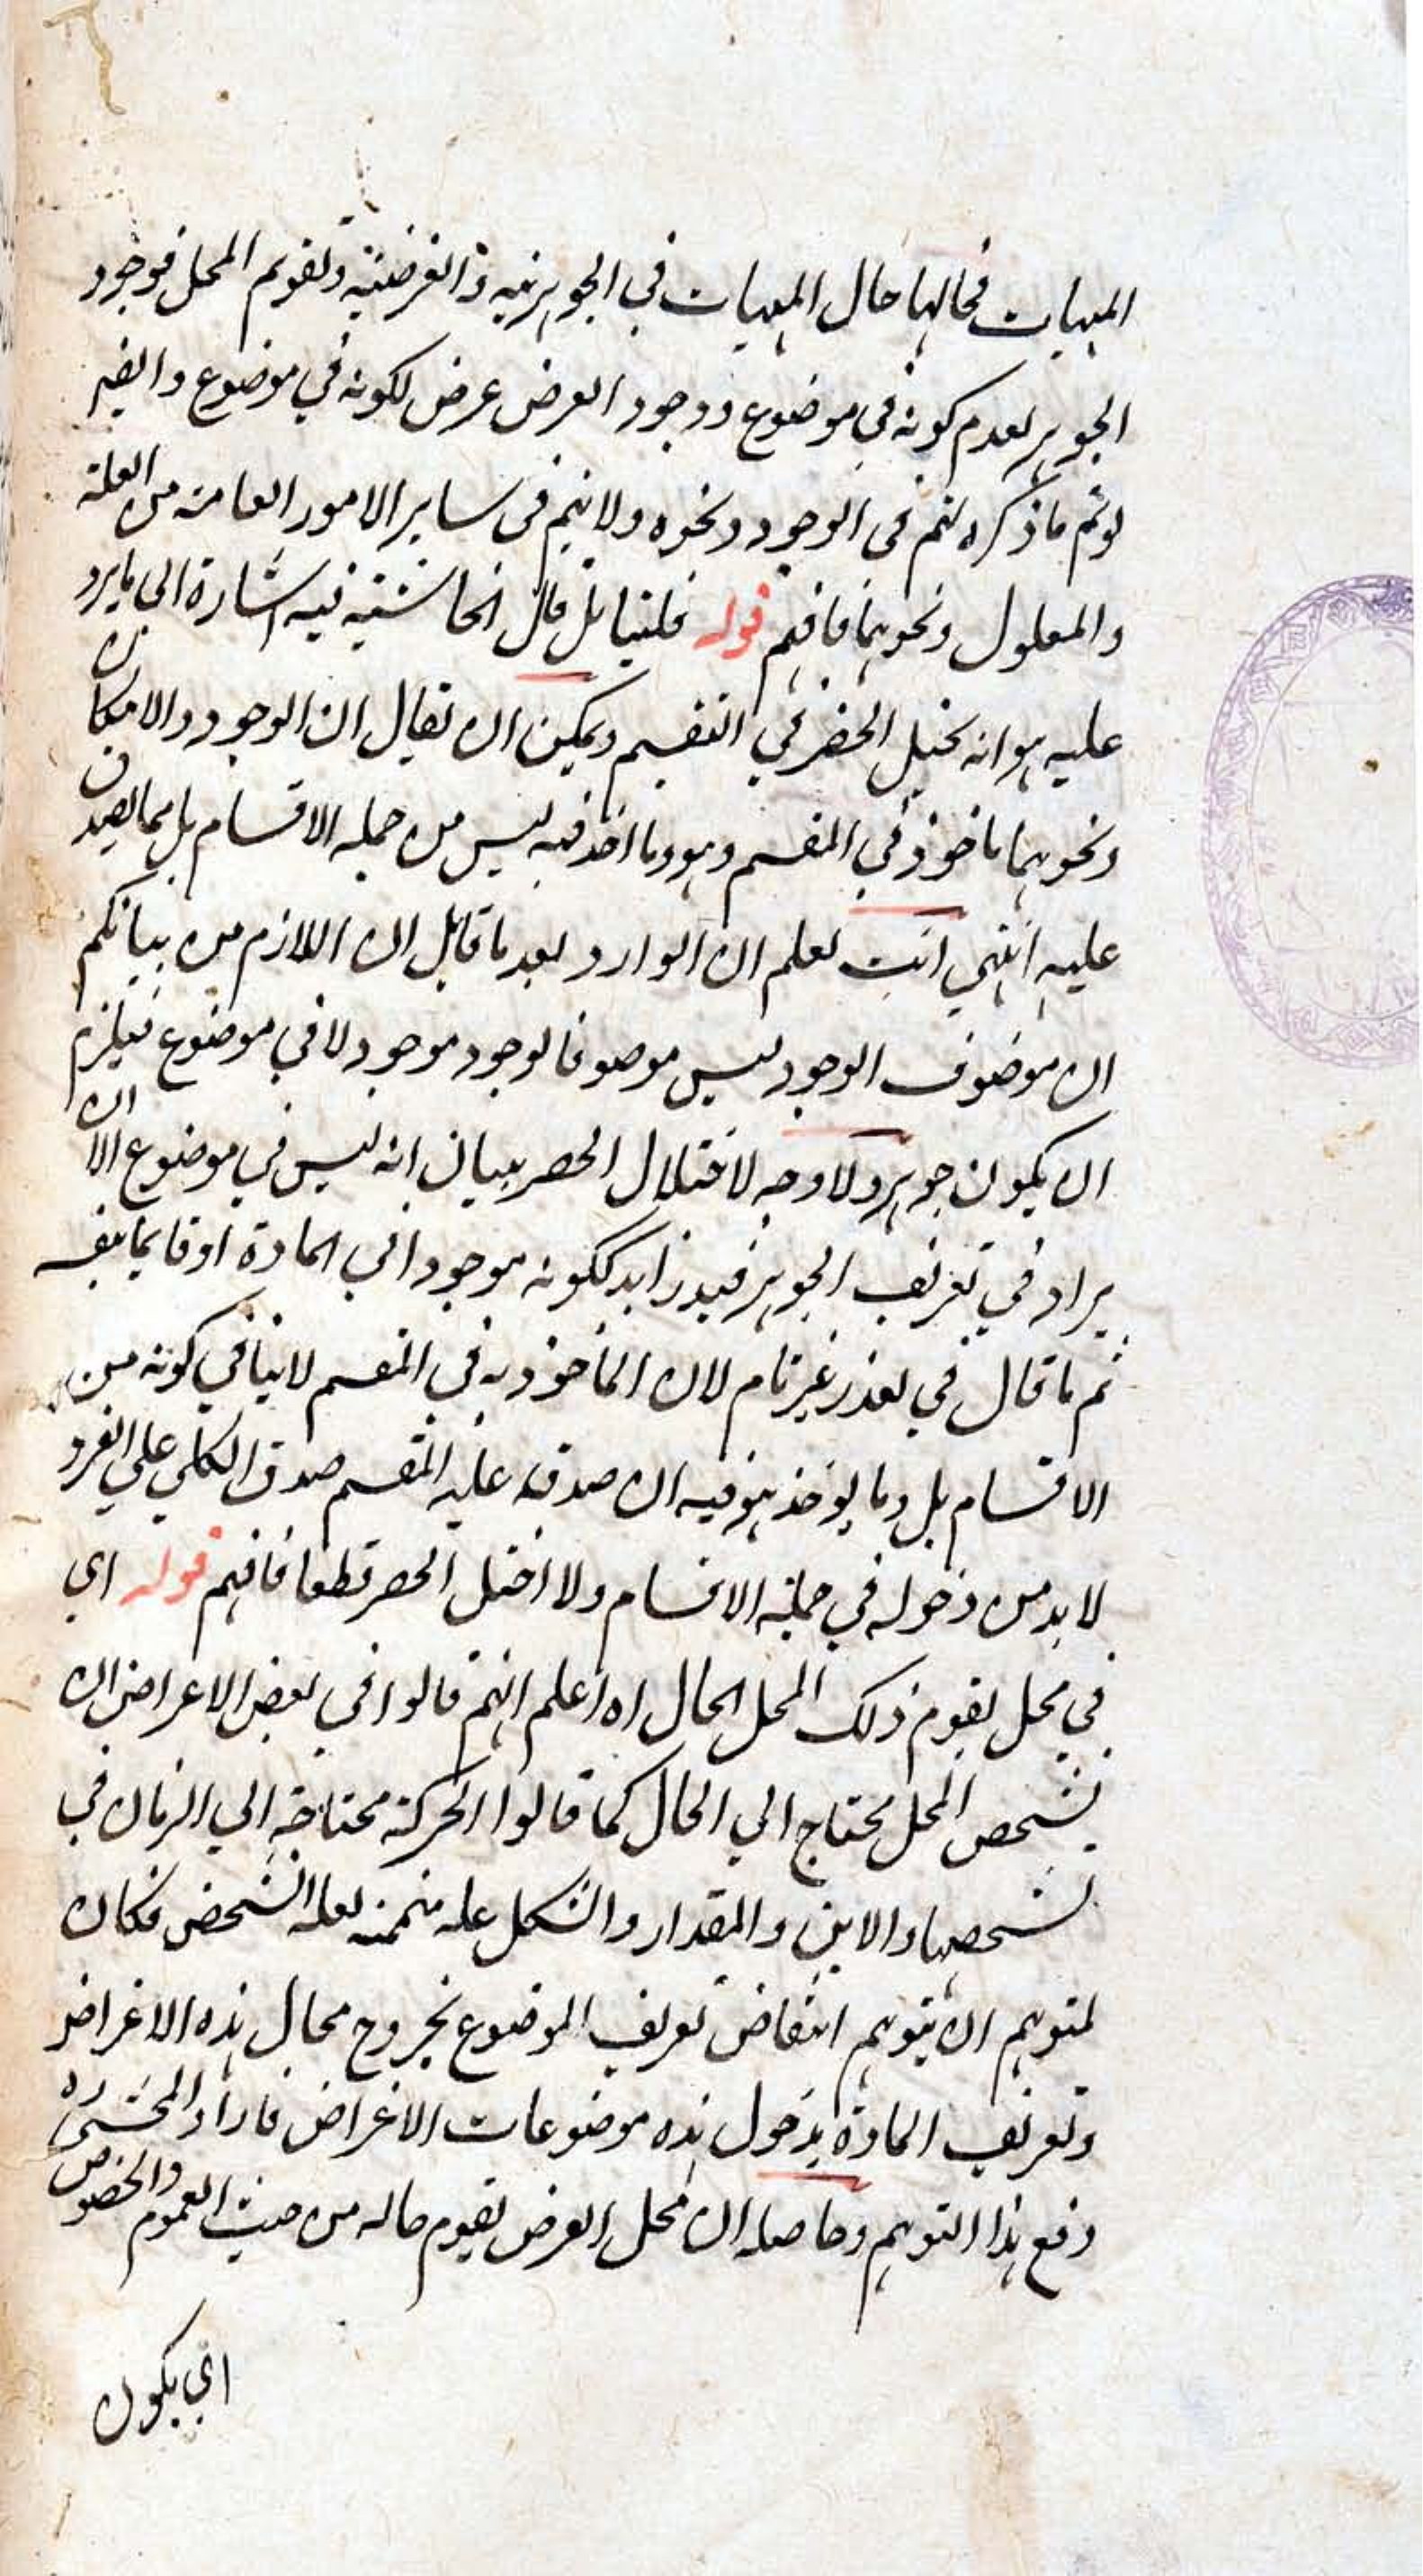 المهيات فحالها حال المهيات في الجوهرية والعرضية وتقويم المحل فوجود
الجوهر لعدم كونه في موضوع ووجود العرض عرض لكونه في موضوع وايضا
لو تم ما ذكره لتم في الوجود ونحوه ولا يتم في ساير الامور العامة من العلة
والمعلول ونحوهما فافهم قوله فليتامل قال الحاشية فيه اشارة الى ما يرد
عليه هو انه يختل الحصر في التقسيم ويمكن ان يقال ان الوجود والامكان
ونحوهما ماخوذ في المقسم وهو وما اخذ فيه ليس من جملة الاقسام بل مما يصدق
عليه انتهى انت تعلم ان الوارد بعد ما قابل ان اللازم من بيانكم
ان موصوف الوجود ليس موصوفا لوجود موجود لا في موضوع فيلزم
ان يكون جوهر ولا وجه لاختلال الحصر ببيان انه ليس في موضوع الا ان
يراد في تعريف الجوهر قيد زايد ككونه موجودا في المادة او قايما بنفسه
ثم ما قال في تعذر غير تام لان الماخوذيه في المقسم لا ينافي كونه من
الاقسام بل وما يوخذ هو فيه ان صدق عليه المقسم صدق الكلي على الفرد
لا بد من دخوله في جملة الاقسام ولا اختل الحصر قطعا فافهم قوله اي
في محل يقوم ذلك المحل الحال اه اعلم انهم قالوا في بعض الاعراض ان
تشخص المحل محتاج الى الحال كما قالوا الحركة محتاجة الى الزمان في
تشخصها والاين والمقدار والشكل علة متممة لعلة التشخص فكان
لمتوهم ان يتوهم انتقاض تعريف الموضوع بخروج محال هذه الاعراض
وتعريف المادة بدخول هذه موضوعات الاعراض فاراد المحشي ره
دفع هذا التوهم وحاصله ان محل العرض يقوم حاله من حيث العموم والخصوص
اي يكون